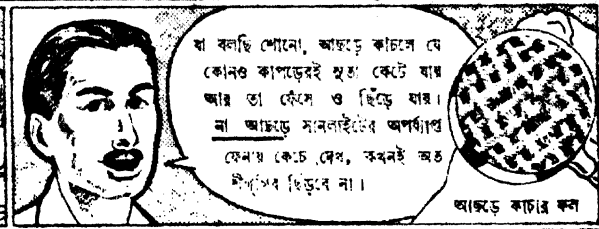 যা বলছি শোনো, আছড়ে কাচলে যে
কোনও কাপড়েরই সুতা কেটে যায়
আর তা ফেঁসে ও ছিঁড়ে যায়।
না আছড়ে সানলাইটের অপর্য্যাপ্ত
ফেনায় কেচে দেখ, কখনই অত
শীগ্গির ছিঁড়বে না।
আছড়ে কাচার ফল